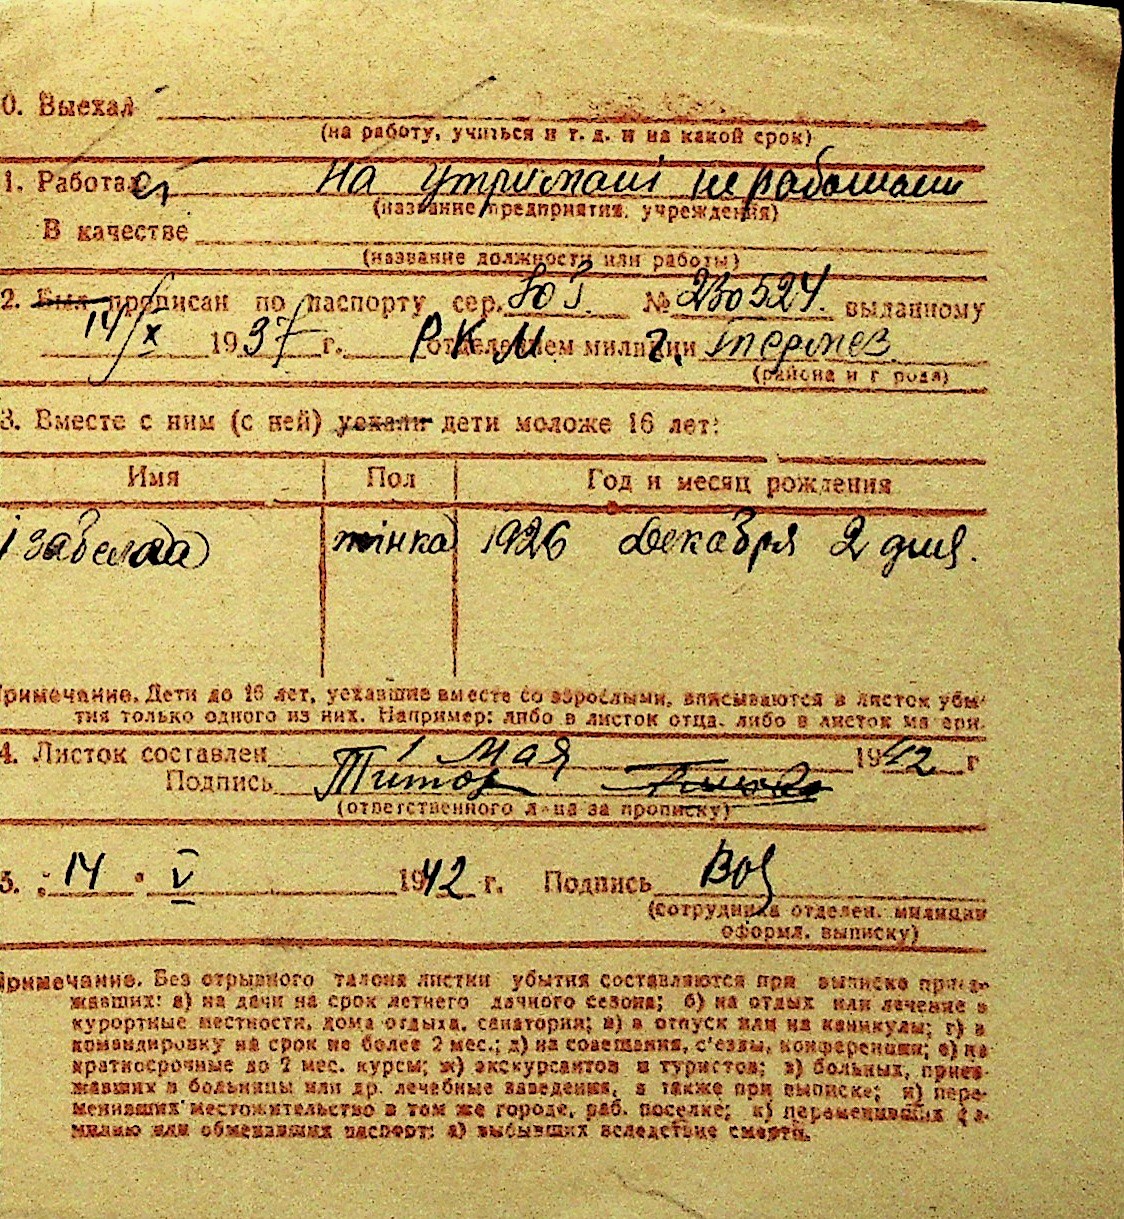 0. Выехал
(на работу, учиться и т. д. и на какой срок)
1. Работал на утримані не работает
(название предприятия, учреждения)
В качестве
(название должности или работы)
2. Был прописан по паспорту сер. № 230524. выданному
14/X 1937 г. Р.К.М. отделением милиции г.
(района и города)
3. Вместе с ним (с ней) уехали дети моложе 16 лет:
Имя Пол Год и месяц рождения
Ізабелла жінка 1926 Декабря 2 дня.
Примечание. Дети до 16 лет, уехавшие вместе со взрослыми, вписываются в листок убы-
тия только одного из них. Например: либо в листок отца, либо в листок матери.
4. Листок составлен 1 Мая 1942 г
Подпись
(ответственного лица за прописку)
5. " 14 " V 1942 г. Подпись
(сотрудника отделен. милиции
оформл. выписку)
Примечание. Без отрывного талона листки убытия составляются при выписке приез-
жавших: а) на дачи на срок летнего дачного сезона; б) на отдых или лечение в
курортные местности, дома отдыха, санатории; в) в отпуск или на каникулы; г) в
командировку на срок не более 2 мес.; д) на совещания, с'езды, конференции; е) на
краткосрочные до 2 мес. курсы; ж) экскурсантов и туристов; з) больных, приез-
жавших в больницы или др. лечебные заведения, а также при выписке; и) пере-
менивших местожительство в том же городе, раб. поселке; к) переменивших фа-
милию или обменявших паспорт; л) выбывших вследствие смерти.